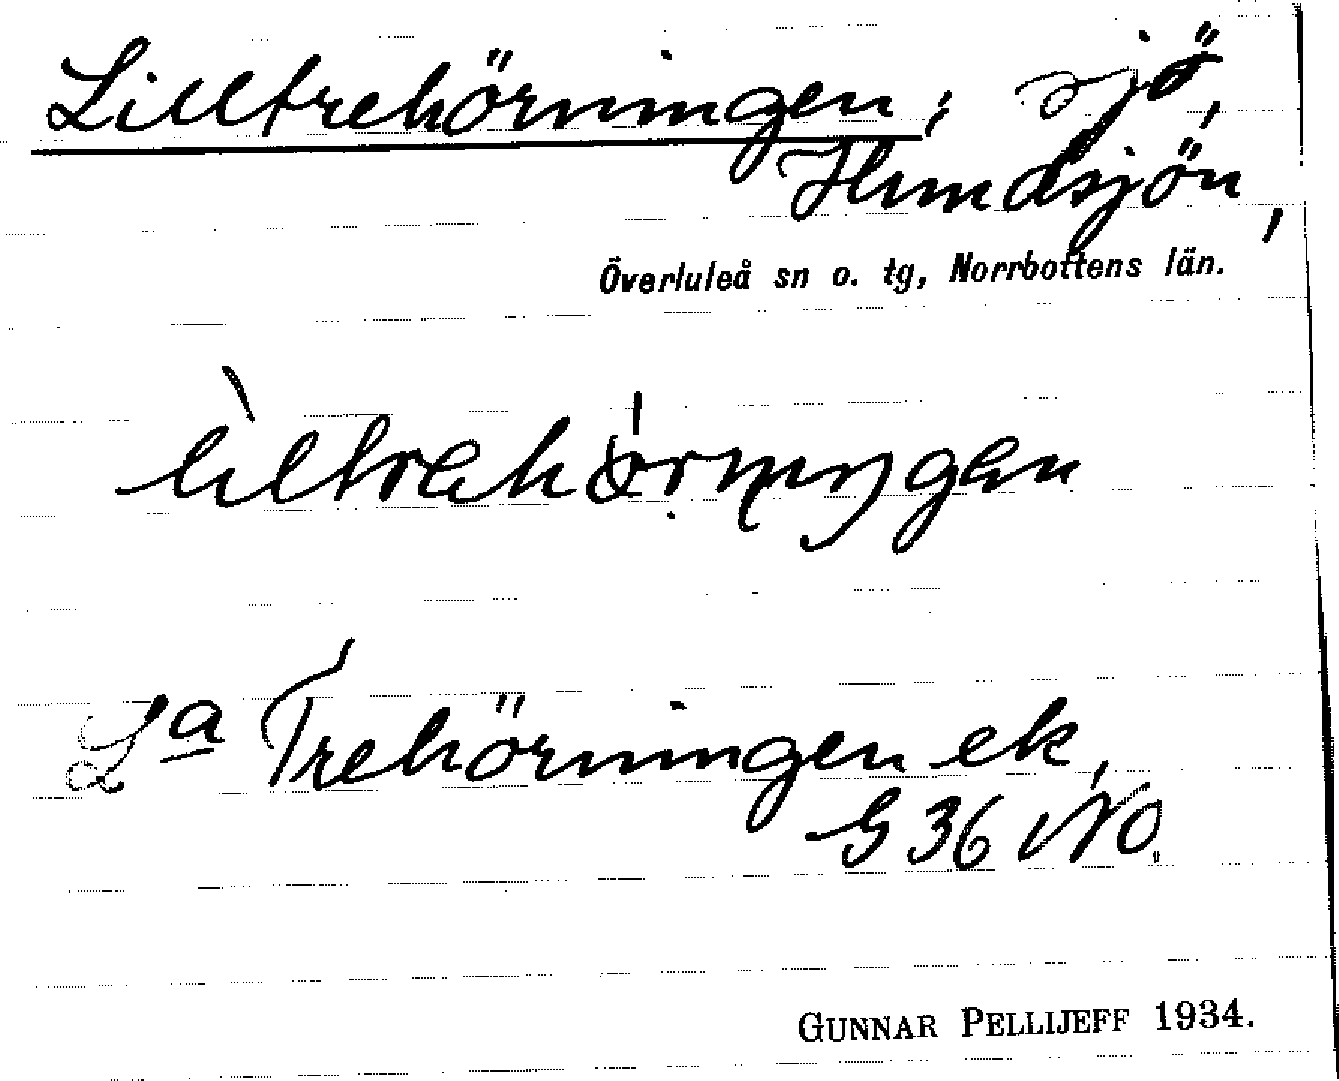 Lilltrehörningen; sjö,
Hundsjön,
Överluleå sn o. tg, Norrbottens län.
La Trehörningen ek,
G 36 NO.
GUNNAR PELLIJEFF 1934.